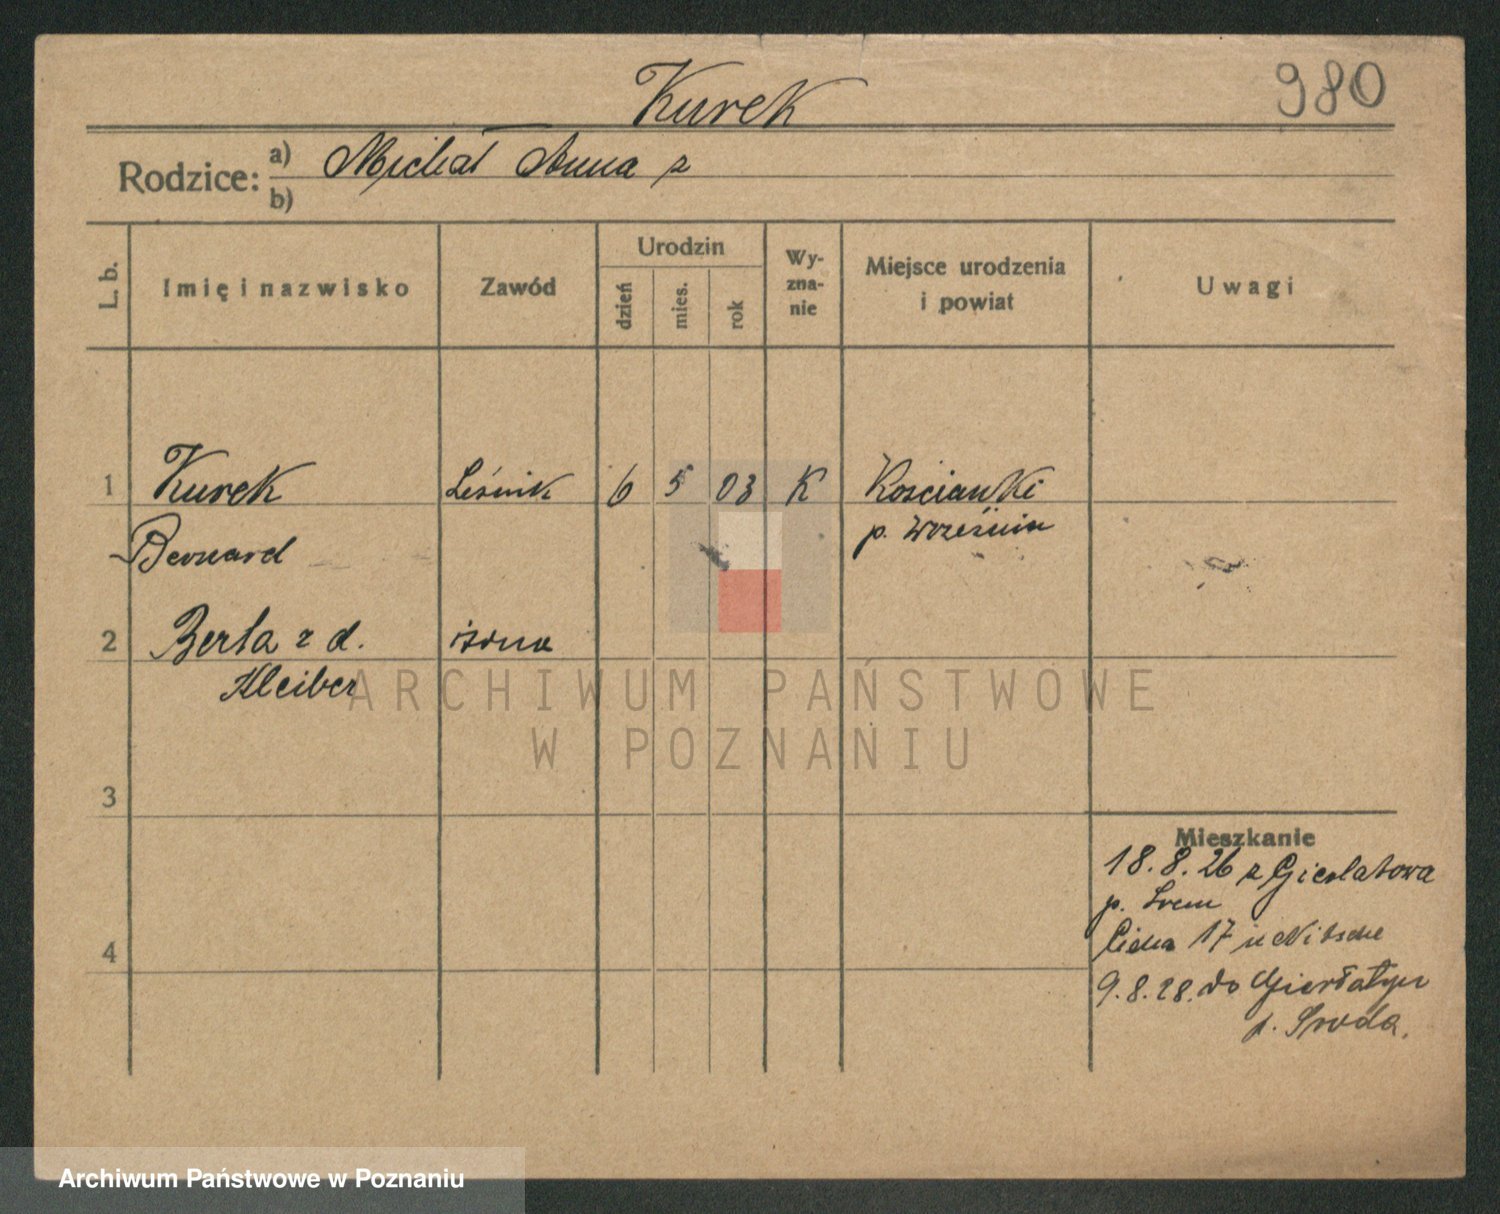 Kurek
980
Rodzice: a) Michał Anna z
b)
L. b.
Imię i nazwisko
Zawód
Urodzin
dzień
mies.
rok
Wy-
zna-
nie
Miejsce urodzenia
i powiat
Uwagi
1 Kurek Leśnik 6 5 03 K Kościanki
Bernard p. Września
2 Berta z d. żona
Kleiber
3
4
Mieszkanie
18.8.26 z Gierłatowa
p. Śrem
17 u Nitsche
9.8.28. do
p. Środa.
ARCHIWUM PAŃSTWOWE
W POZNANIU
Archiwum Państwowe w Poznaniu